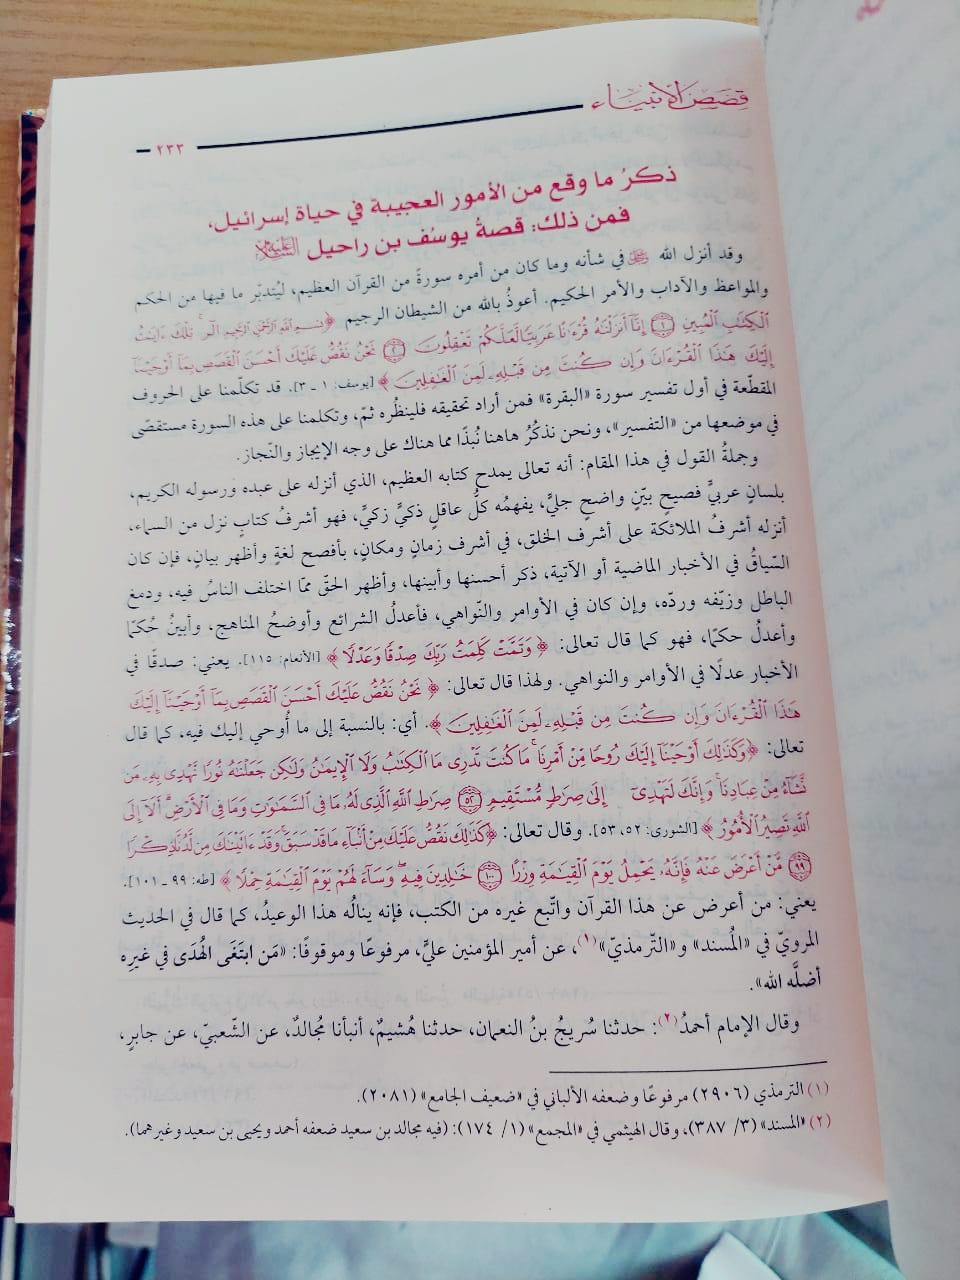 قصص الأنبياء
٢٣٣
ذكرُ ما وقع من الأمور العجيبة في حياة إسرائيل،
فمن ذلك: قصةُ يوسُف بن راحيل عليه السلام
وقد أنزل الله ﷻ في شأنه وما كان من أمره سورةً من القرآن العظيم، ليُتدبّر ما فيها من الحكم
والمواعظ والآداب والأمر الحكيم. أعوذُ بالله من الشيطان الرجيم ﴿بِسْمِ اللَّهِ الرَّحْمَنِ الرَّحِيمِ الٓر ۚ تِلْكَ ءَايَٰتُ
ٱلْكِتَٰبِ ٱلْمُبِينِ ١ إِنَّآ أَنزَلْنَٰهُ قُرْءَٰنًا عَرَبِيًّا لَّعَلَّكُمْ تَعْقِلُونَ ٢ نَحْنُ نَقُصُّ عَلَيْكَ أَحْسَنَ ٱلْقَصَصِ بِمَآ أَوْحَيْنَآ
إِلَيْكَ هَٰذَا ٱلْقُرْءَانَ وَإِن كُنتَ مِن قَبْلِهِۦ لَمِنَ ٱلْغَٰفِلِينَ﴾ [يوسف: ١ ـ ٣]. قد تكلّمنا على الحروف
المقطّعة في أول تفسير سورة «البقرة» فمن أراد تحقيقه فلينظُره ثمّ، وتكلمنا على هذه السورة مستقصًى
في موضعها من «التفسير»، ونحن نذكُرُ هاهنا نُبذًا مما هناك على وجه الإيجاز والنّجاز.
وجملةُ القول في هذا المقام: أنه تعالى يمدح كتابه العظيم، الذي أنزله على عبده ورسوله الكريم،
بلسانٍ عربيٍّ فصيحٍ بيّنٍ واضحٍ جليٍّ، يفهمُه كلُّ عاقلٍ ذكيٍّ زكيٍّ، فهو أشرفُ كتابٍ نزل من السماء،
أنزله أشرفُ الملائكة على أشرف الخلق، في أشرف زمانٍ ومكانٍ، بأفصح لغةٍ وأظهر بيانٍ، فإن كان
السّياقُ في الأخبار الماضية أو الآتية، ذكر أحسنها وأبينها، وأظهر الحقّ ممّا اختلف الناسُ فيه، ودمغ
الباطل وزيّفه وردّه، وإن كان في الأوامر والنّواهي، فأعدلُ الشرائع وأوضحُ المناهج، وأبينُ حُكمًا
وأعدلُ حكمًا، فهو كما قال تعالى: ﴿وَتَمَّتْ كَلِمَتُ رَبِّكَ صِدْقًا وَعَدْلًا﴾ [الأنعام: ١١٥]. يعني: صدقًا في
الأخبار عدلًا في الأوامر والنواهي. ولهذا قال تعالى: ﴿نَحْنُ نَقُصُّ عَلَيْكَ أَحْسَنَ ٱلْقَصَصِ بِمَآ أَوْحَيْنَآ إِلَيْكَ
هَٰذَا ٱلْقُرْءَانَ وَإِن كُنتَ مِن قَبْلِهِۦ لَمِنَ ٱلْغَٰفِلِينَ﴾. أي: بالنسبة إلى ما أُوحي إليك فيه، كما قال
تعالى: ﴿وَكَذَٰلِكَ أَوْحَيْنَآ إِلَيْكَ رُوحًا مِّنْ أَمْرِنَا ۚ مَا كُنتَ تَدْرِى مَا ٱلْكِتَٰبُ وَلَا ٱلْإِيمَٰنُ وَلَٰكِن جَعَلْنَٰهُ نُورًا نَّهْدِى بِهِۦ مَن
نَّشَآءُ مِنْ عِبَادِنَا ۚ وَإِنَّكَ لَتَهْدِىٓ إِلَىٰ صِرَٰطٍ مُّسْتَقِيمٍ ٥٢ صِرَٰطِ ٱللَّهِ ٱلَّذِى لَهُۥ مَا فِى ٱلسَّمَٰوَٰتِ وَمَا فِى ٱلْأَرْضِ ۗ أَلَآ إِلَى
ٱللَّهِ تَصِيرُ ٱلْأُمُورُ﴾ [الشورى: ٥٢، ٥٣]. وقال تعالى: ﴿كَذَٰلِكَ نَقُصُّ عَلَيْكَ مِنْ أَنۢبَآءِ مَا قَدْ سَبَقَ ۚ وَقَدْ ءَاتَيْنَٰكَ مِن لَّدُنَّا ذِكْرًا
٩٩ مَّنْ أَعْرَضَ عَنْهُ فَإِنَّهُۥ يَحْمِلُ يَوْمَ ٱلْقِيَٰمَةِ وِزْرًا ١٠٠ خَٰلِدِينَ فِيهِ ۖ وَسَآءَ لَهُمْ يَوْمَ ٱلْقِيَٰمَةِ حِمْلًا﴾ [طه: ٩٩ ـ ١٠١].
يعني: من أعرض عن هذا القرآن واتّبع غيره من الكتب، فإنه ينالُه هذا الوعيدُ، كما قال في الحديث
المرويّ في «المُسند» و«التّرمذيّ»(١)، عن أمير المؤمنين عليٍّ، مرفوعًا وموقوفًا: «مَن ابتَغَى الهُدَى في غيرِه
أضلَّه الله».
وقال الإمام أحمدُ(٢): حدثنا سُريجُ بنُ النعمان، حدثنا هُشيمٌ، أنبأنا مُجالدٌ، عن الشّعبيّ، عن جابرٍ،
(١) الترمذي (٢٩٠٦) مرفوعًا وضعفه الألباني في «ضعيف الجامع» (٢٠٨١).
(٢) «المسند» (٣/ ٣٨٧)، وقال الهيثمي في «المجمع» (١/ ١٧٤): (فيه مجالد بن سعيد ضعفه أحمد ويحيى بن سعيد وغيرهما).